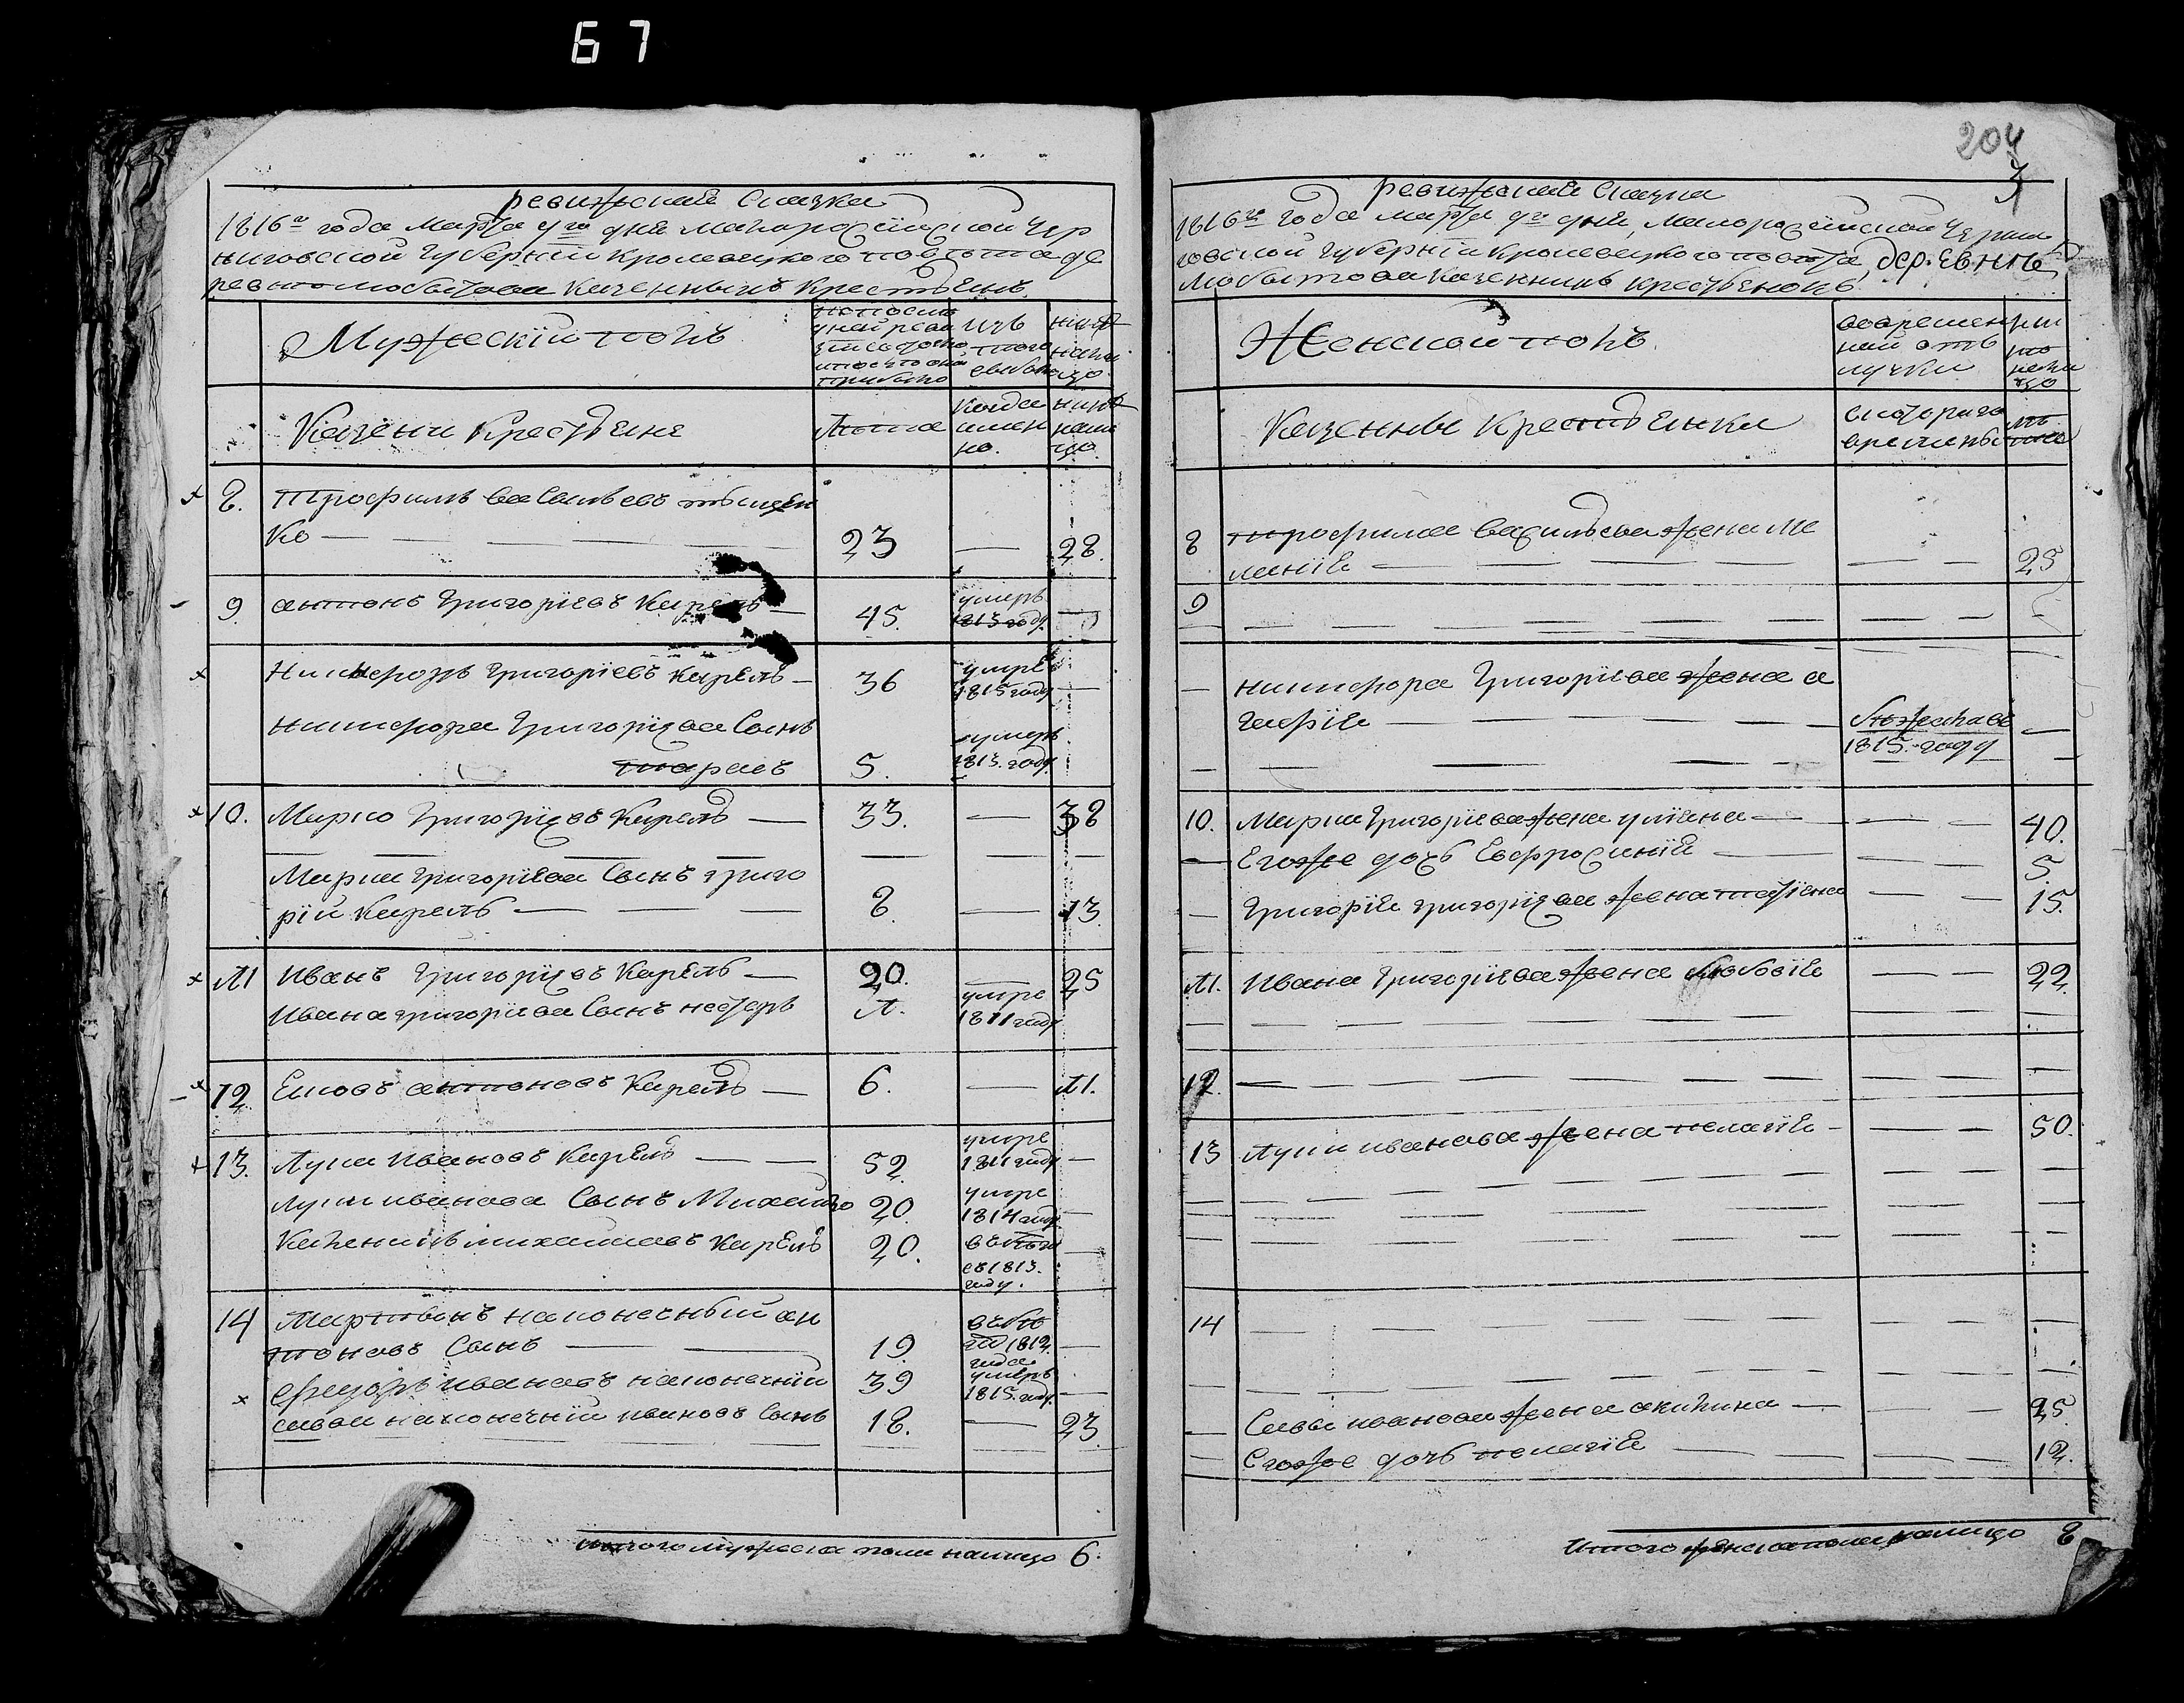 67
ревижская Сказка
1816го года марта 4го дня Малороссійской Чер
ниговской Губерніи Кролевецкого повета де
ревни Любитова Казенныхъ Крестьенъ
Мужескій полъ
изъ
того
нине
налицо
Казени Крестьяне
Лета
Когда
имен
но.
нине
нали
цо.
8. Трофимъ Васильевъ
ко — 23 — 28.
9. антонъ Григоріевъ Карель — 45. умеръ
1813 году —
Никифоръ Григоріевъ Карель — 36 умре
1815 году —
Никифора Григоріева Сынъ умеръ
тарасъ 5. 1813. году
10. Марко Григоріевъ Карель — 33. — 38
Марка Григоріева Сынъ григо
рій Карель — 8. — 13.
11 Иванъ Григоріевъ Карель — 20. — 25
Ивана григоріева Сынъ несторъ 1. умре
1811 году
12 антоновъ Карель — 6. — 11.
13. Лука Ивановъ Карель — 52. умре
1811 году —
Луки иванова Сынъ Михайло 20. умре
1814 году —
михайловъ Карель 20. в бега
съ 1813.
году. —
14 Мартинъ наконечный ан
тоновъ Сынъ — 19. в бе
1812
года —
Федоръ ивановъ наконечній 39 умеръ
1815. году —
савва наконечній ивановъ Сынъ 18. — 23.
итого мужеска пола налицо 6.
204
3
ревижская Сказка
1816го года марта 4го дня, Малоросейской Черни
говской Губерніи Кролевецкого повета, деревне
Любитова Казеннихъ Крестьенокъ
Женской полъ
вовремен
ной отъ
лучки
налицо
Казенны Крестьянки
скоторого
времены
ле
та
8 трофима Васильева жена Ме
ланія — 25
9 —
— никифора Григоріева жена а
гафія — Сбежала въ
1815. году —
10. Марка Григоріева жена уліяна — 40.
— Егоже дочъ Евфросинія — 5
— Григорія григоріева жена татіяна — 15.
11. Ивана Григоріева жена любовія — 22.
12. —
13 Луки иванова жена пелагія — 50.
14 —
— Савы иванова жена акилина — 25.
— Егоже дочъ пелагія — 12.
Итого женска пола налицо 8